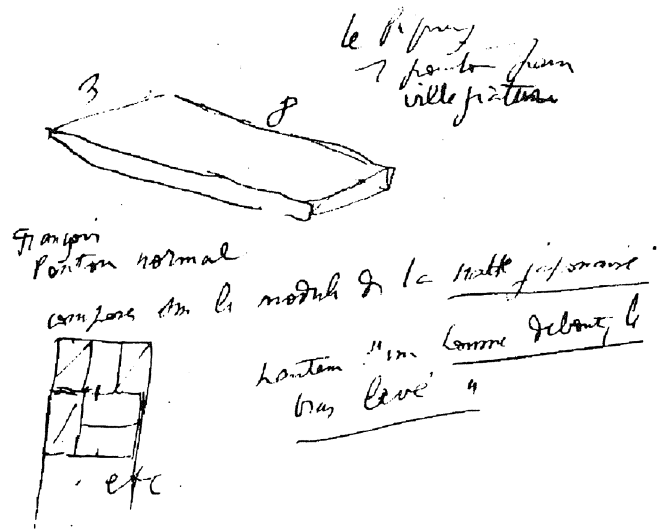 le
1 ponton pour
villégiature
3
8
François
Ponton normal
composer sur le module de la natte japonaise
hauteur "un homme debout, le
bras levé"
etc